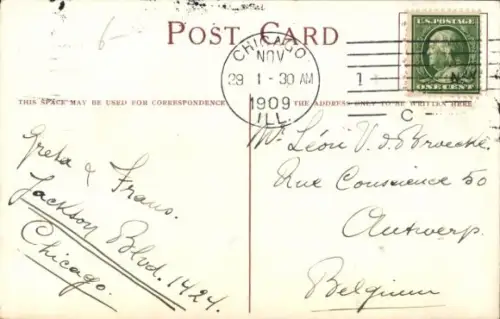 6
POST CARD
CHICAGO
NOV
29 1-30 AM
1909
ILL.
1
C
U.S. POSTAGE
ONE CENT
THIS SPACE MAY BE USED FOR CORRESPONDENCE
THE ADDRESS ONLY TO BE WRITTEN HERE
Greta & Frans.
Jackson Blvd. 1424.
Chicago.
Mr Léon V. d. Broecke.
Rue Conscience 50
Antwerp.
Belgium